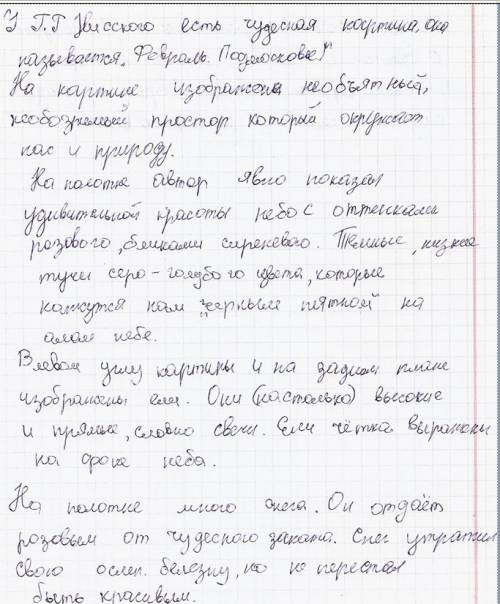 У Г.Г Нисского есть чудесная картина, она
называется „Февраль. Подмосковье"
На картине изображены необъятный,
необозримый простор который окружает
нас и природу.
На полотне автор явно показал
удивительной красоты небо с оттенками
розового, бликами сиреневого. Тёмные, низкие
тучи серо-голубого цвета, которые
кажутся нам "черным пятном" на
алом небе.
В левом углу картины и на заднем плане
изображены ели. Они (настолько) высокие
и прямые, словно свечи. Ели чётка выражены
на фоне неба.
На полотне много снега. Он отдаёт
розовым от чудесного заката. Снег утратил
свою ослеп. белезну, но не перестал
быть красивым.